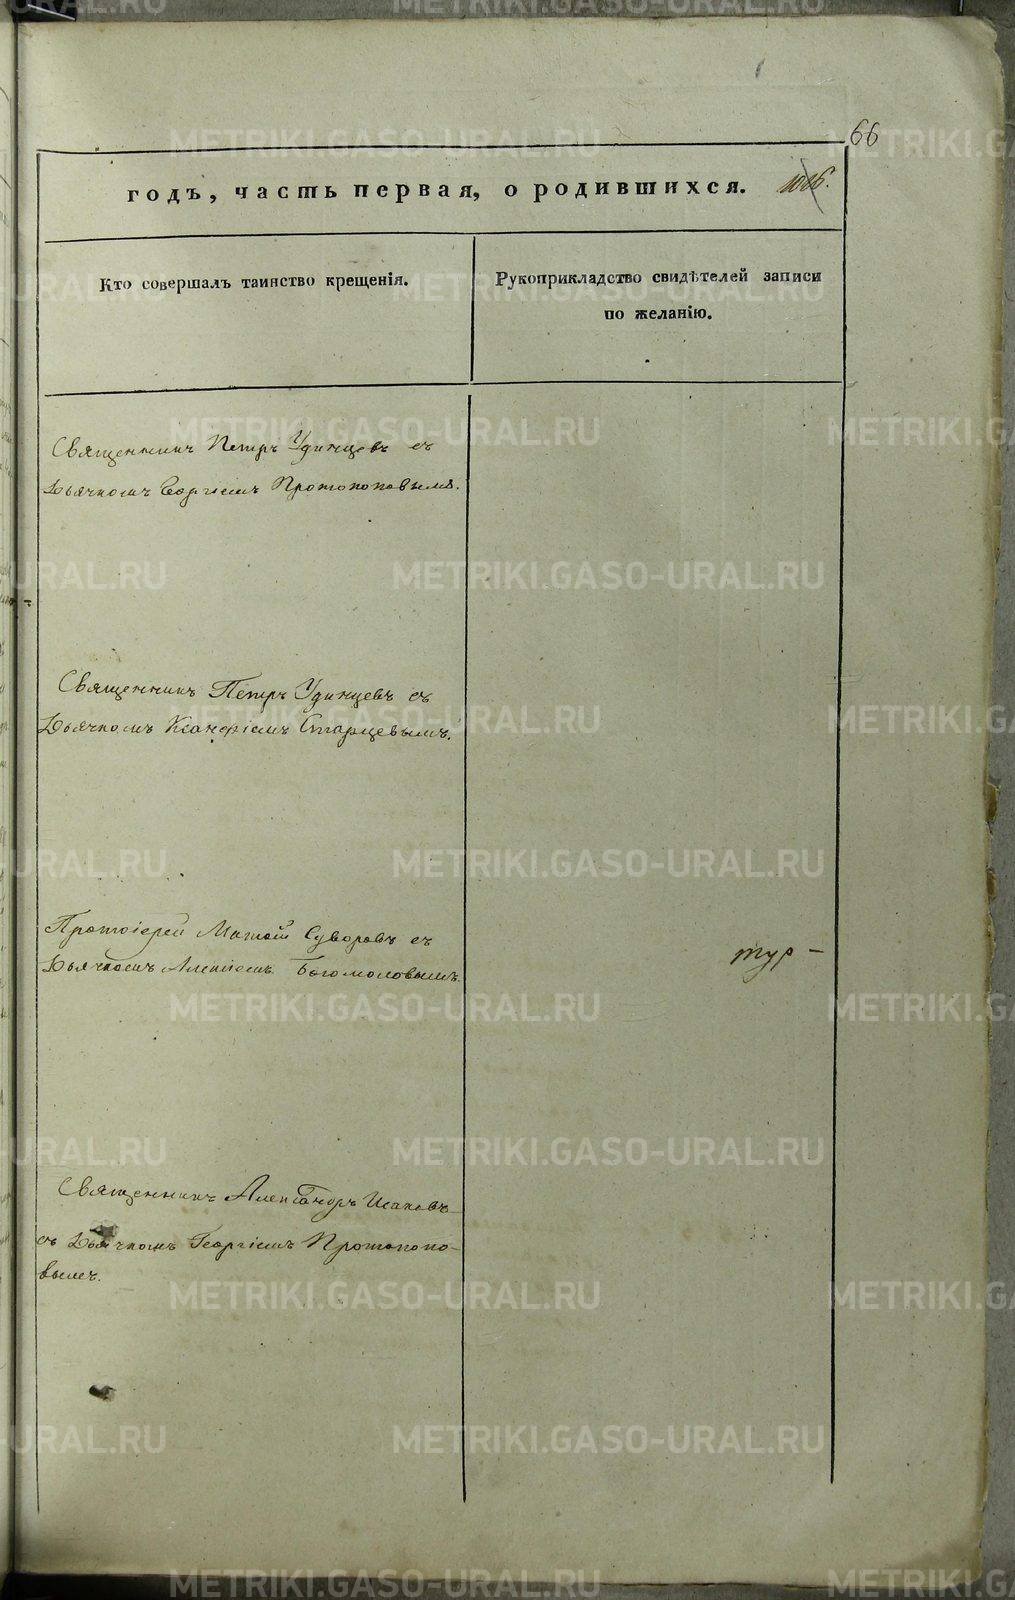 66
годъ, часть первая, о родившихся. 1006.
Кто совершалъ таинство крещенія.
Рукоприкладство свидѣтелей записи
по желанію.
Священникъ Петръ Удинцевъ съ
Дьячкомъ Георгіемъ Протопоповымъ.
Священникъ Петръ Удинцевъ съ
Дьячкомъ Ксанфіемъ Старцевымъ.
Протоіерей Матѳій Суворовъ съ
Дьячкомъ Алексіемъ Богомоловымъ.
тур –
Священникъ Александръ Исаковъ
съ Дьячкомъ Георгіемъ Протопопо-
вымъ.
METRIKI.GASO-URAL.RU